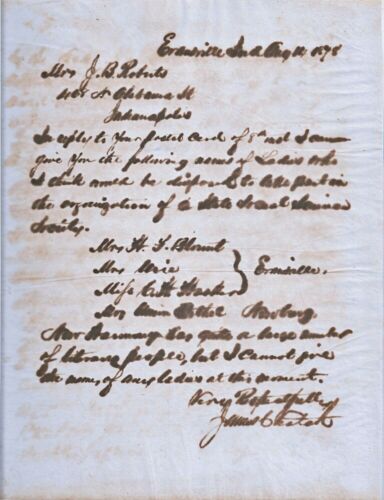 Evansville Ind Aug 12 1878
Mrs J. B. Roberts
N. Alabama St
Indianapolis
In reply to Your postal Card of 8th inst I can
give You the following names of Ladies who
I think would be disposed to take part in
the organization of a State Social Science
Society.
Mrs H. F. Blount
Mrs
Miss
Evansville.
Mrs Ann Newburg.
New Harmony has quite a large number
of literary people, but I cannot give
the names of any ladies at this moment.
Very Respectfully
James